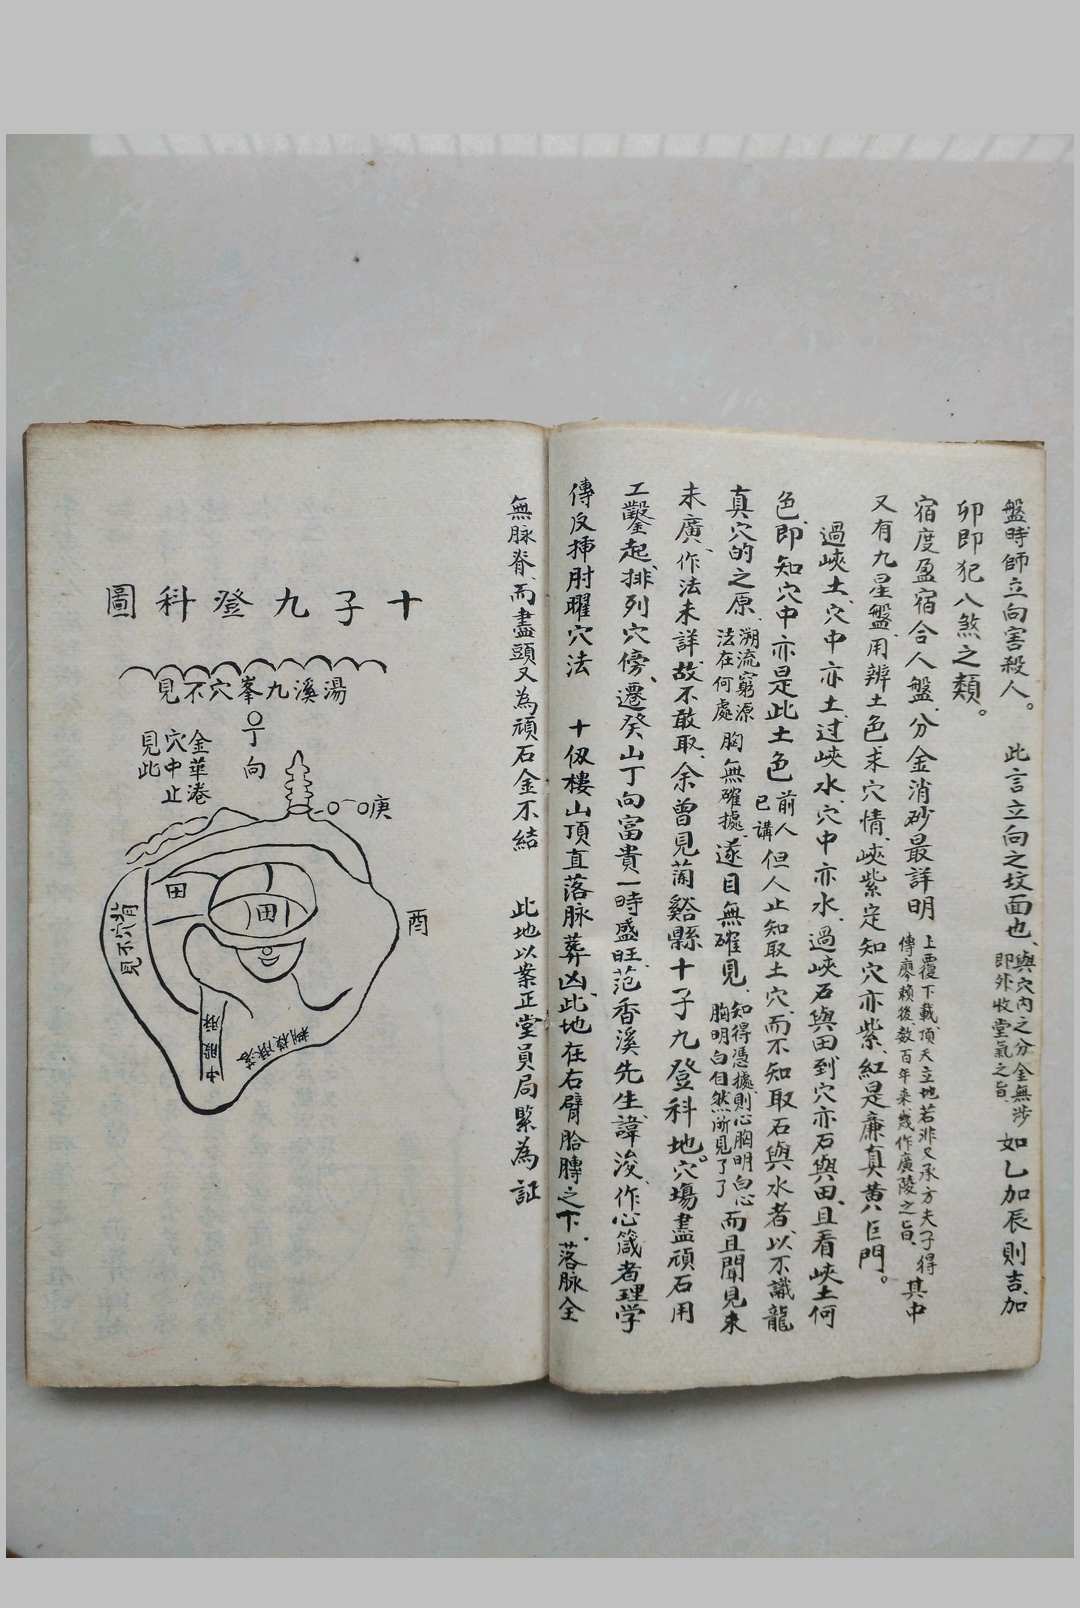 盤、時師立向害殺人。　此言立向之坟面也、與穴內之分金無涉即外收堂氣之旨、如乙加辰則吉、加
卯即犯八煞之類。
宿度盈宿合人盤、分金消砂最詳明　上覆下載、頂天立地、若非又承方夫子得傳廖賴後、数百年来、幾作廣陵之旨、其中
又有九星盤、用辨土色求穴情、峽紫定知穴亦紫、紅是廉真黄巨門。
過峽土穴中亦土、过峽水、穴中亦水、過峽石與田到穴亦石與田、且看峽土何
色、即知穴中亦是此土色　前人已講　但人止知取土穴、而不知取石與水者、以不識龍
真穴的之原、溯流窮源法在何處　胸無確據、遂目無確見、知得憑據、則心胸明白、心胸明白自然所見了了　而且聞見未
未廣、作法未詳、故不敢取、余曾見蘭谿縣十子九登科地。穴塲盡頑石用
工鑿起、排列穴傍、遷癸山丁向富貴一時盛旺、范香溪先生諱浚、作心箴者理学
傳反挿肘曜穴法　十仭樓山頂直落脉葬凶、此地在右臂胎膊之下、落脉全
無脉脊、而盡頭又為頑石金不結　此地以案正堂員局緊為証
十子九登科圖
湯溪九峯穴不見
丁向
金華港
穴中止
見此
庚
酉
背穴不見
田
田
中股